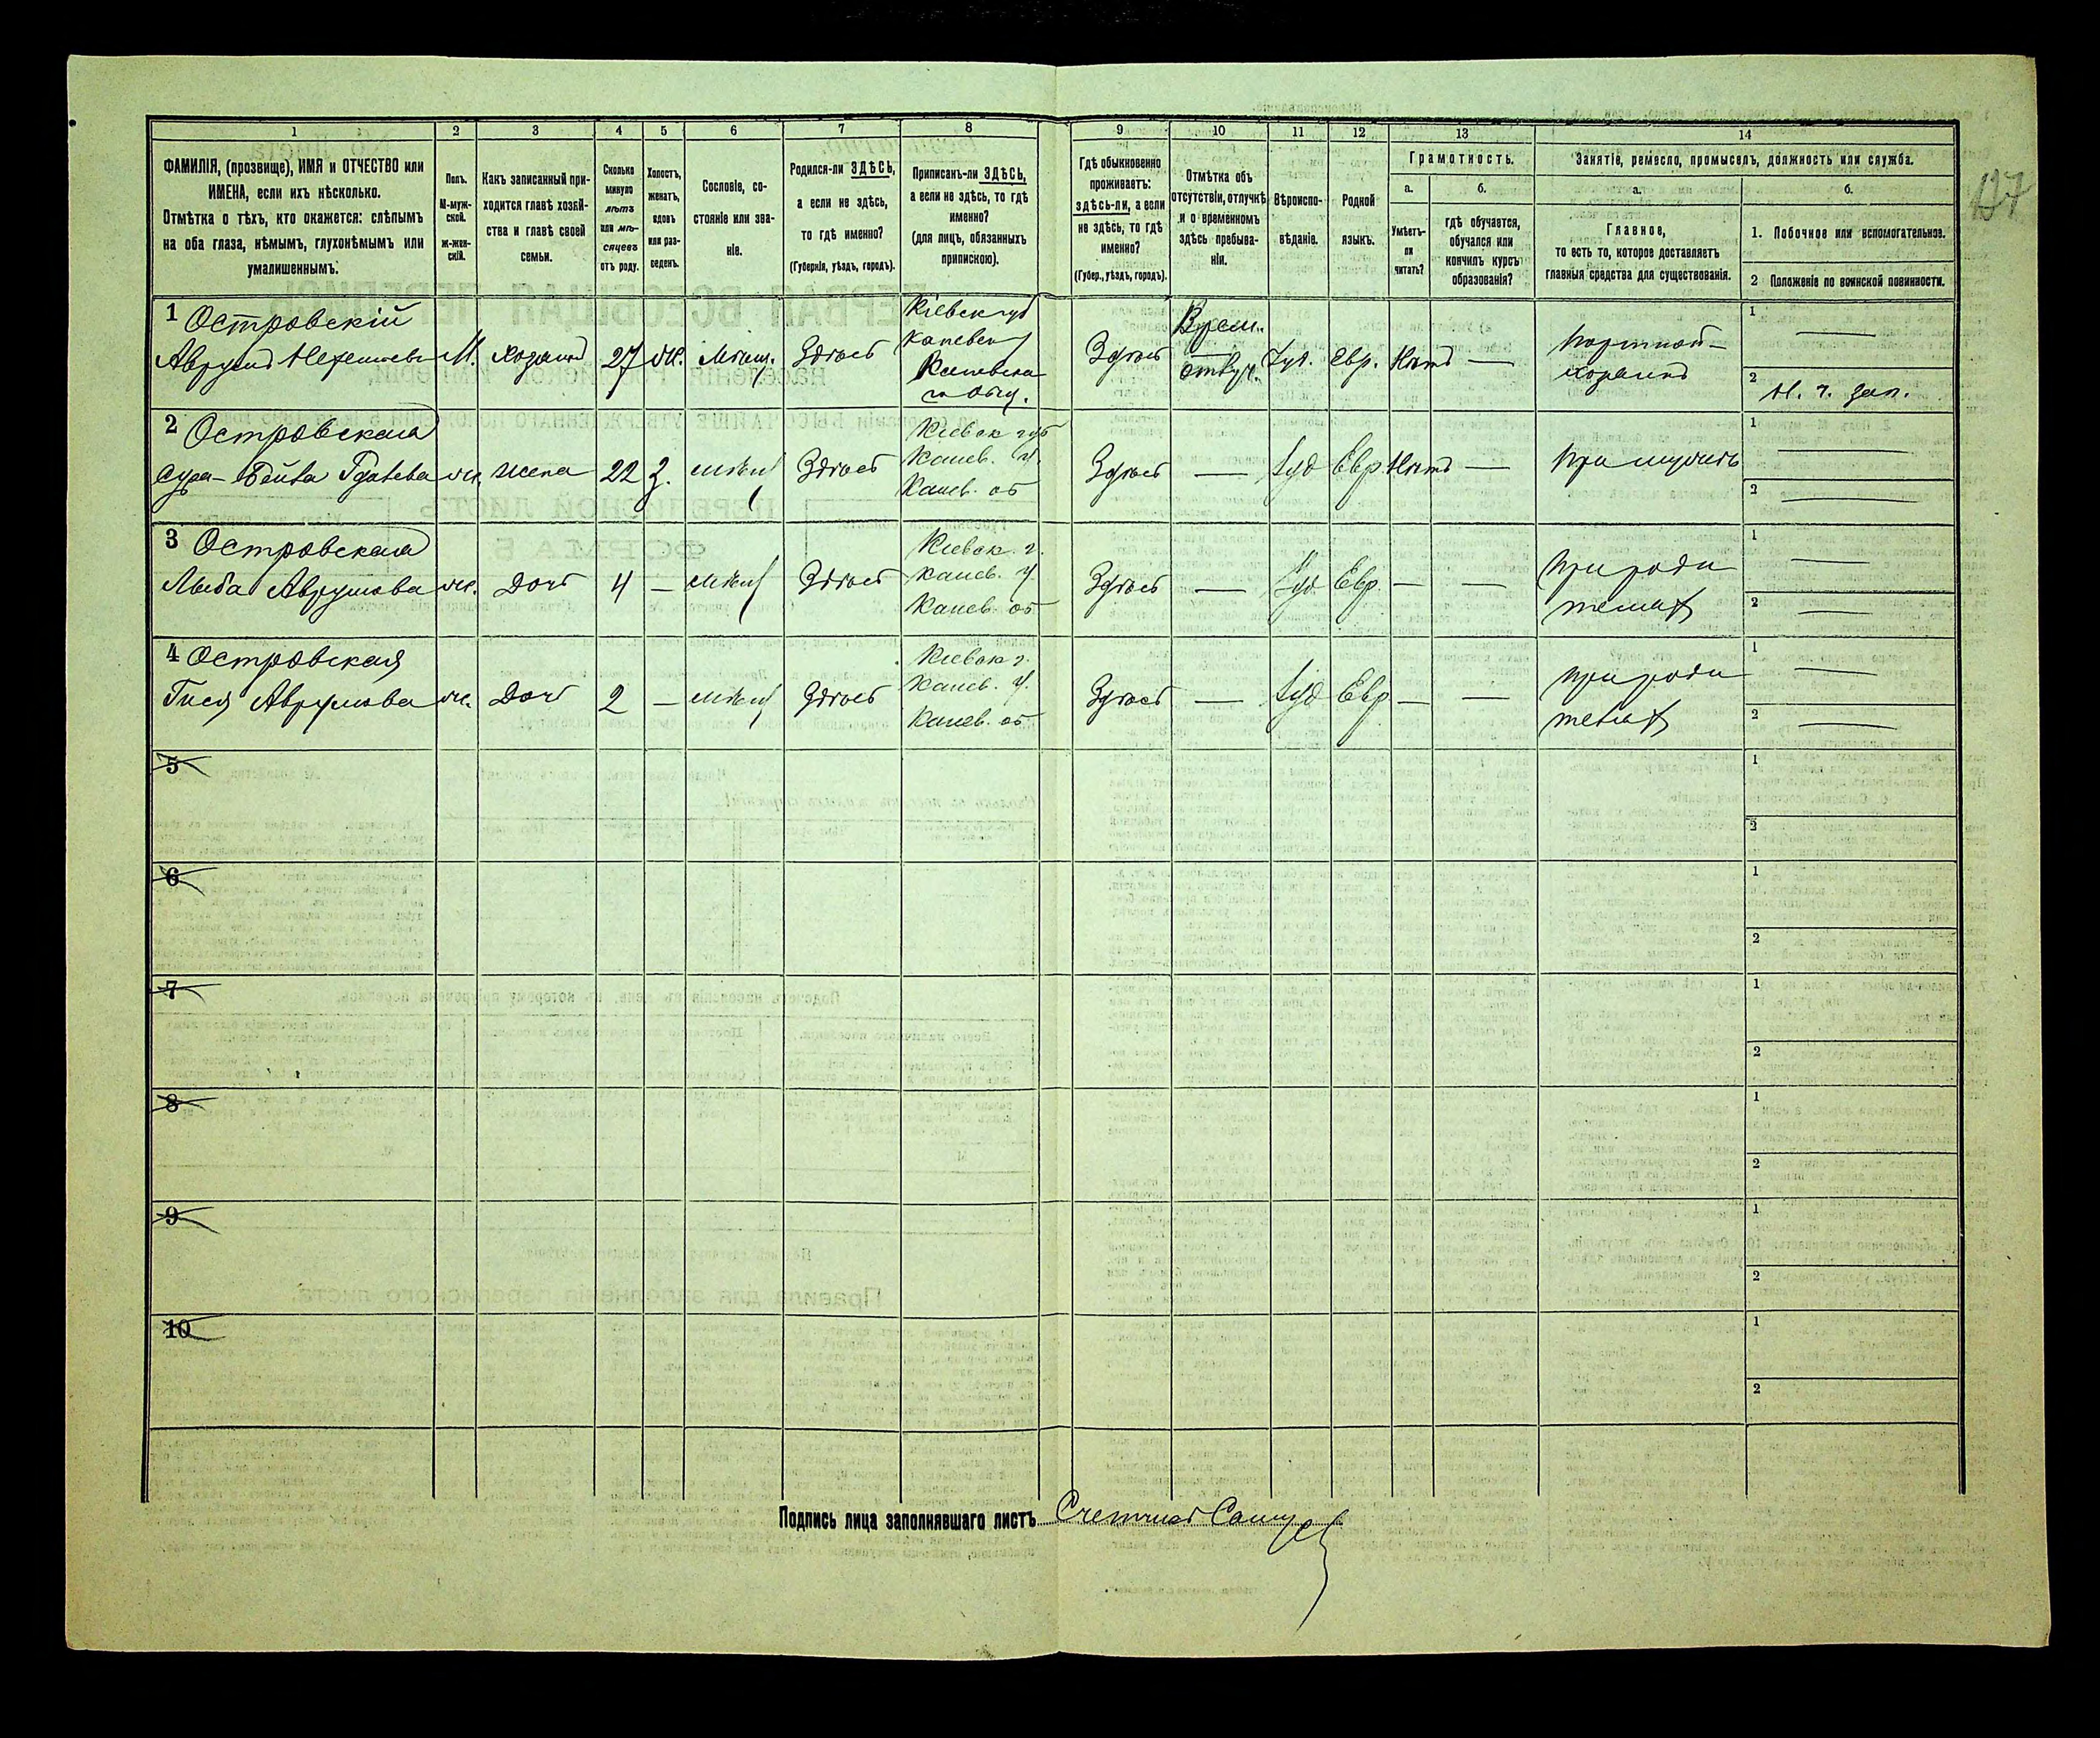 137
1 2 3 4 5 6 7 8 9 10 11 12 13 14
ФАМИЛІЯ, (прозвище), ИМЯ и ОТЧЕСТВО или
ИМЕНА, если ихъ нѣсколько.
Отмѣтка о тѣхъ, кто окажется: слѣпымъ
на оба глаза, нѣмымъ, глухонѣмымъ или
умалишеннымъ.
Полъ.
М-муж-
ской.
ж-жен-
скій.
Какъ записанный при-
ходится главѣ хозяй-
ства и главѣ своей
семьи.
Сколько
минуло
лѣтъ
или мѣ-
сяцевъ
отъ роду.
Холостъ,
женатъ,
вдовъ
или раз-
веденъ.
Сословіе, со-
стояніе или зва-
ніе.
Родился-ли ЗДѢСЬ,
а если не здѣсь,
то гдѣ именно?
(Губернія, уѣздъ, городъ).
Приписанъ-ли ЗДѢСЬ,
а если не здѣсь, то гдѣ
именно?
(для лицъ, обязанныхъ
припискою).
Гдѣ обыкновенно
проживаетъ:
здѣсь-ли, а если
не здѣсь, то гдѣ
именно?
(Губер., уѣздъ, городъ).
Отмѣтка объ
отсутствіи, отлучкѣ
и о временномъ
здѣсь пребыва-
ніи.
Вѣроиспо-
вѣданіе.
Родной
языкъ.
Грамотность.
а.
Умѣетъ-
ли
читать?
б.
гдѣ обучается,
обучался или
кончилъ курсъ
образованія?
Занятіе, ремесло, промыселъ, должность или служба.
а.
Главное,
то есть то, которое доставляетъ
главныя средства для существованія.
б.
1. Побочное или вспомогательное.
2 Положеніе по воинской повинности.
1 Островскій
Аврумъ М. хозяинъ 27 ж. Мѣщ. Здѣсь
Кіевск губ
Каневск у
Каневска
го общ.
Здѣсь
Врем.
отлуч.
Іуд. Евр. Нѣтъ —
Портной —
хозяинъ
1 —
2 Н. ч. зап.
2 Островская
Сура-Бейла ж. жена 22 з. мѣщ Здѣсь
Кіевск губ
Канев. у.
Канев. об
Здѣсь — Іуд Евр Нѣтъ — При мужѣ
1 —
2 —
3 Островская
Лыба Аврумова ж. Дочь 4 — мѣщ Здѣсь
Кіевск. г.
Канев. у.
Канев. об
Здѣсь — Іуд Евр. — —
При роди
теляхъ
1 —
2 —
4 Островская
Гися Аврумова ж. Дочь 2 — мѣщ Здѣсь
Кіевск г.
Канев. у.
Канев. об
Здѣсь — Іуд Евр — —
При роди
теляхъ
1 —
2 —
5 1
2
6 1
2
7 1
2
8 1
2
9 1
2
10 1
2
Подпись лица заполнявшаго листъ Счетчикъ